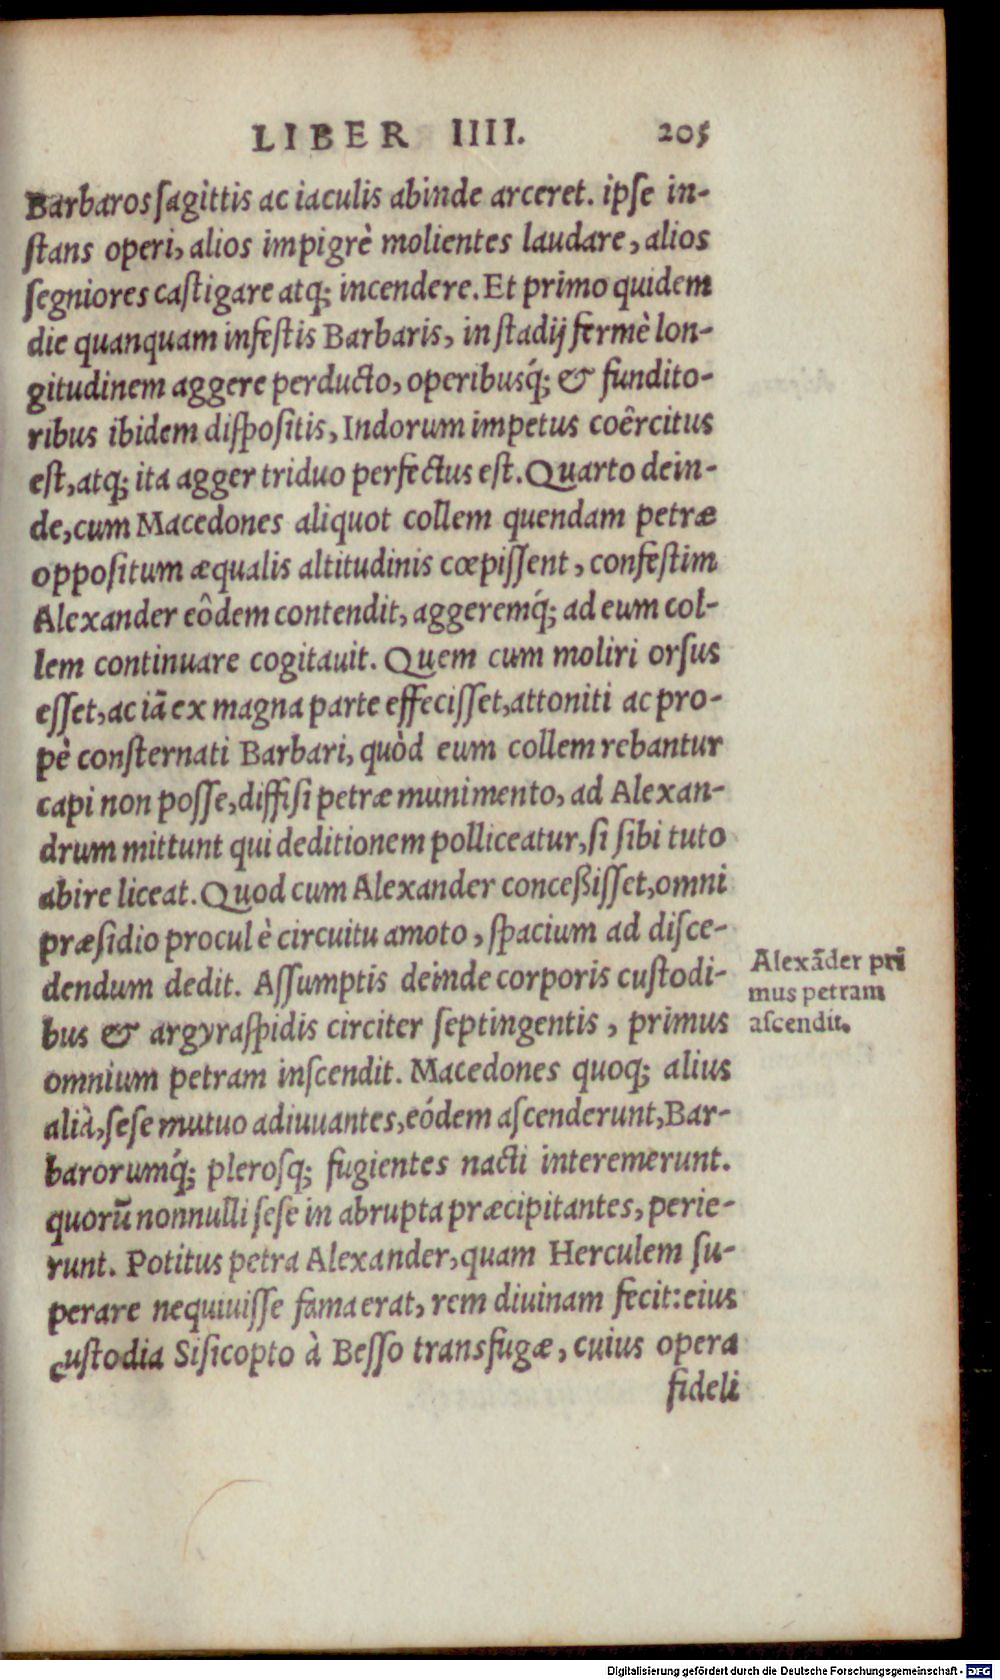 LIBER IIII. 205
Barbaros sagittis ac iaculis abinde arceret. ipse in-
stans operi, alios impigrè molientes laudare, alios
segniores castigare atq; incendere. Et primo quidem
die quanquam infestis Barbaris, in stadij fermè lon-
gitudinem aggere perducto, operibusq́; & fundito-
ribus ibidem dispositis, Indorum impetus coêrcitus
est, atq; ita agger triduo perfectus est. Quarto dein-
de, cum Macedones aliquot collem quendam petræ
oppositum æqualis altitudinis cœpissent, confestim
Alexander eôdem contendit, aggeremq́; ad eum col-
lem continuare cogitauit. Quem cum moliri orsus
esset, ac iã ex magna parte effecisset, attoniti ac pro-
pè consternati Barbari, quòd eum collem rebantur
capi non posse, diffisi petræ munimento, ad Alexan-
drum mittunt qui deditionem polliceatur, si sibi tuto
abire liceat. Quod cum Alexander conceßisset, omni
præsidio procul è circuitu amoto, spacium ad disce-
dendum dedit. Assumptis deinde corporis custodi-
bus & argyraspidis circiter septingentis, primus
omnium petram inscendit. Macedones quoq; alius
alià, sese mutuo adiuuantes, eódem ascenderunt, Bar-
barorumq́; plerosq; fugientes nacti interemerunt.
quorũ nonnulli sese in abrupta præcipitantes, perie-
runt. Potitus petra Alexander, quam Herculem su-
perare nequiuisse fama erat, rem diuinam fecit: eius
custodia Sisicopto à Besso transfugæ, cuius opera
fideli
Alexãder pri
mus petram
ascendit.
Digitalisierung gefördert durch die Deutsche Forschungsgemeinschaft - DFG